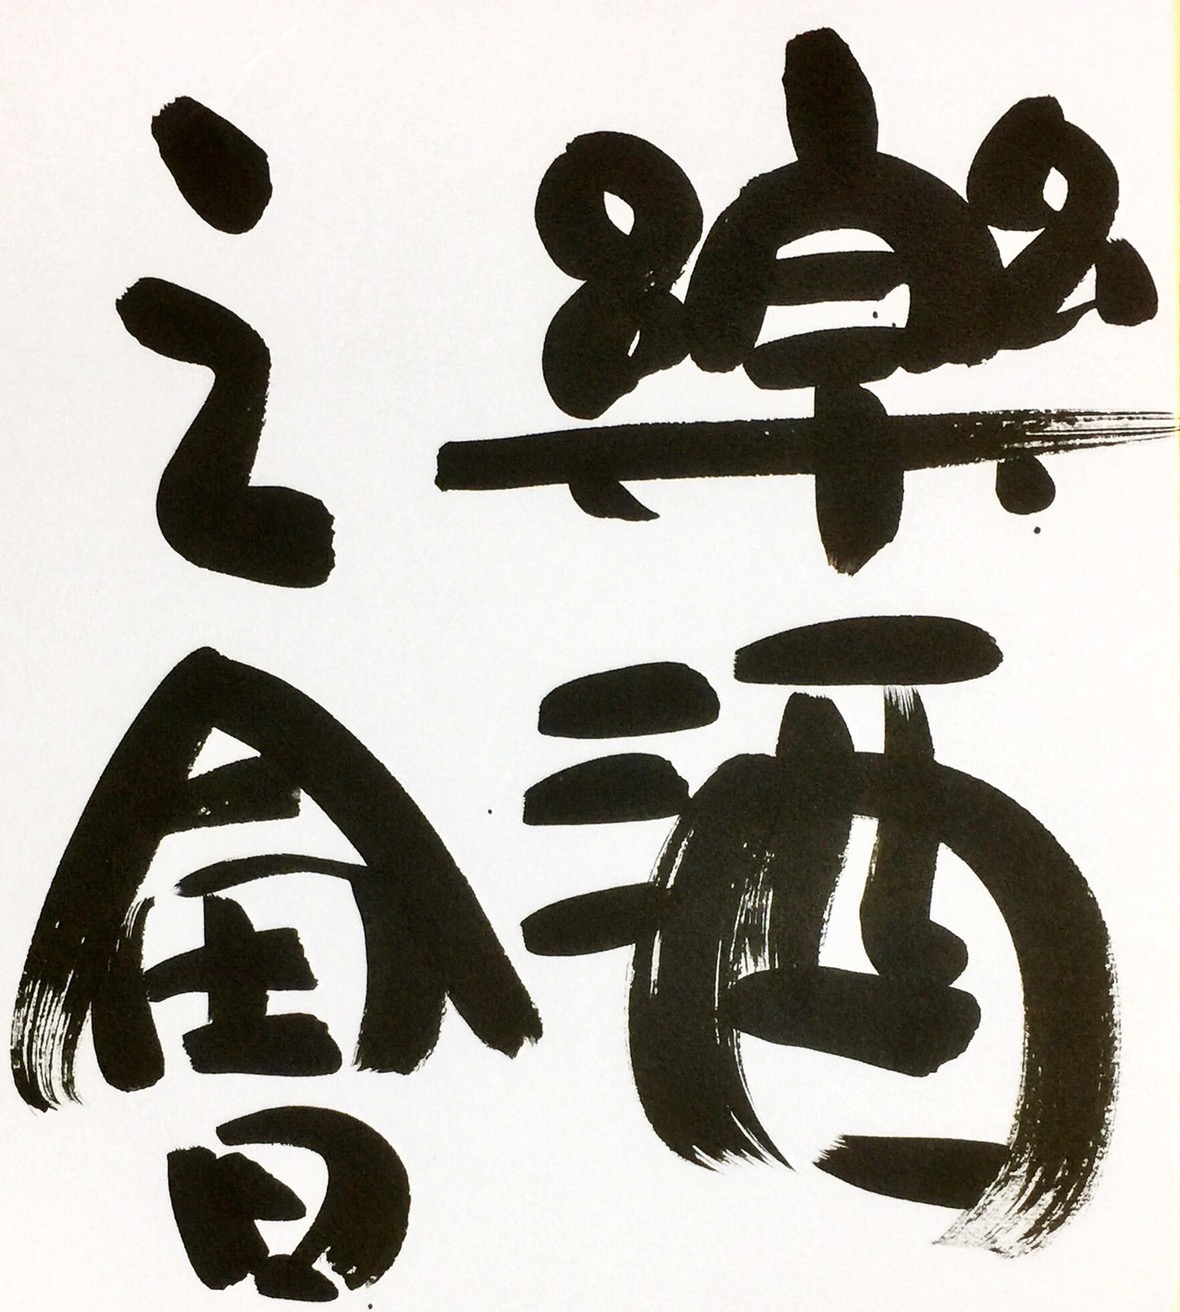 樂酒
之會